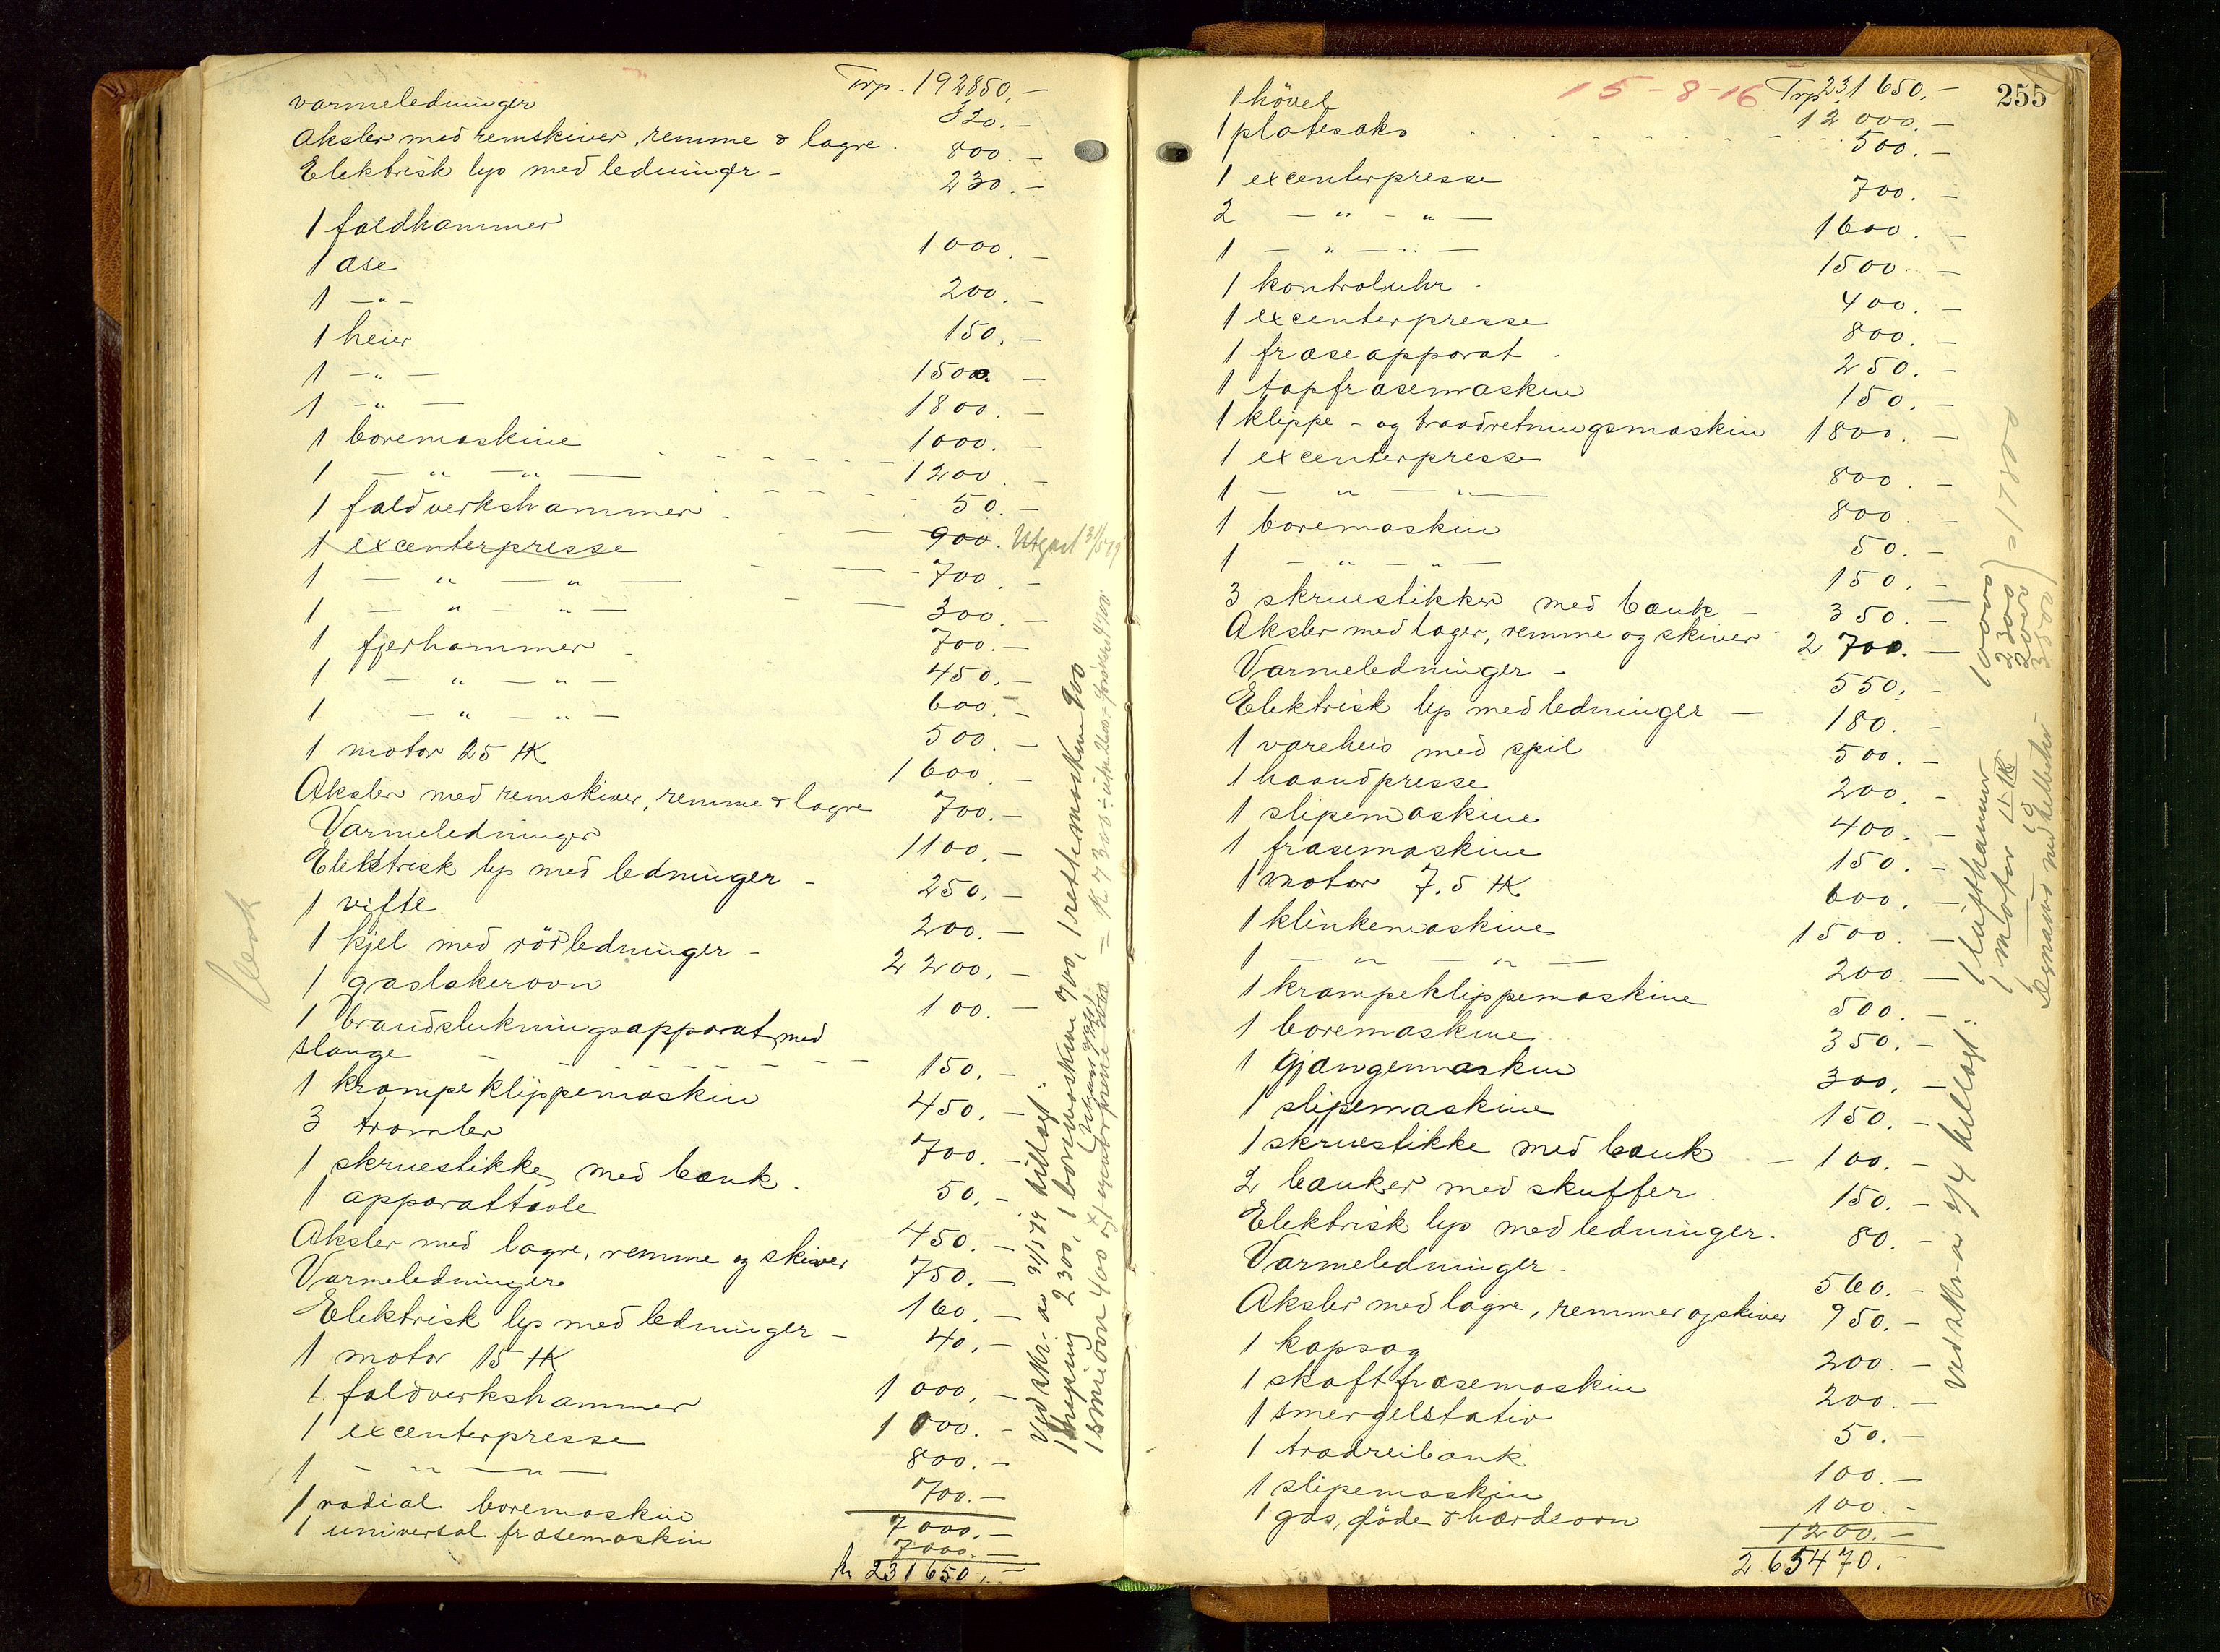 Trp. 192850.-
varmeledninger 320.-
Aksler med remskiver, remme & lagre 800.-
Elektrisk lys med ledninger - 230.-
1 faldhammer 1000.-
1 æse 200.-
1 -"- 150.-
1 heier 1500.-
1 -"- 1800.-
1 -"- 1000.-
1 boremaskine 1200.-
1 -"-"- 50.-
1 faldverkshammer 900. Utgaat 31/5 19
1 excenterpresse 700.-
1 -"-"- 300.-
1 -"-"- 700.-
1 fjerhammer 450.-
1 -"-"- 600.-
1 -"-"- 500.-
1 motor 25 HK 1600.-
Aksler med remskiver, remme & lagre 700.-
Varmeledninger 1100.-
Elektrisk lys med ledninger - 250.-
1 vifte 200.-
1 kjel med rörledninger - 2200.-
1 gaslakerovn 100.-
1 brandslukningsapparat med
slange 150.-
1 krampeklippemaskin 450.-
3 tromler 700.-
1 skruestikke med bænk. 50.-
1 apparattavle 450.-
Aksler med lagre, remme og skiver 750.-
Varmeledninger 160.-
Elektrisk lys med ledninger - 40.-
1 motor 15 HK 1000.-
1 faldverkshammer 1000.-
1 excenterpresse 800.-
1 -"-"- 700.-
1 radial boremaskin 7000.-
1 universal fræsemaskin 7000.-
kr 231650.-
Ved skr. av 31/5 19 tillagt:
1 shaping 2300, 1 boremaskine 700, 1 rettemaskin 900
1 smieovn 400 og 1 excenterpresse 3000 = K 7300
255
15-8-16
Trp 231650.-
1 hövel 12000.-
1 platesaks 500.-
1 excenterpresse 700.-
2 -"-"- 1600.-
1 -"-"- 1500.-
1 kontroluhr 400.-
1 excenterpresse 800.-
1 fræseapparat 250.-
1 tapfræsemaskin 150.-
1 klippe- og traadretningsmaskin 1800.-
1 excenterpresse 800.-
1 -"-"- 800.-
1 boremaskin 50.-
1 -"-"- 150.-
3 skruestikker med bænk - 350.-
Aksler med lager, remme og skiver 2700.-
Varmeledninger - 550.-
Elektrisk lys med ledninger - 180.-
1 vareheis med spil 500.-
1 haandpresse 200.-
1 slipemaskine 400.-
1 fræsemaskine 150.-
1 motor 7.5 HK 600.-
1 klinkemaskine 1500.-
1 -"-"- 200.-
1 krampeklippemaskine 500.-
1 boremaskine 350.-
1 gjængemaskin 300.-
1 slipemaskine 150.-
1 skruestikke med bænk - 100.-
2 bænker med skuffer. 150.-
Elektrisk lys med ledninger. 80.-
Varmeledninger. 560.-
Aksler med lagre, remmer og skiver 950.-
1 kapsag 200.-
1 skaftfræsemaskin 200.-
1 smergelstativ 50.-
1 trædreibænk 100.-
1 slipemaskin 100.-
1 gas, glöde & hærdeovn 1200.-
265470.-
Ved skr. av 9/4 tillagt:
1 lufthammer 10000
1 motor 15 HK 2300